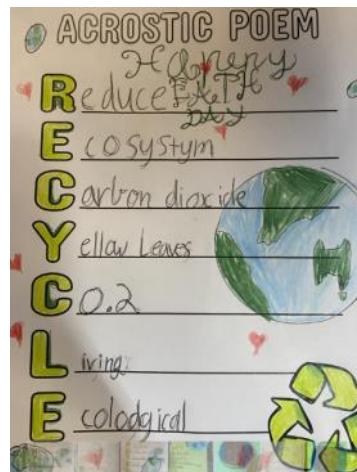 ACROSTIC POEM
Happy
Reduce EATH
DAY
Ecosystym
Carbon dioxide
Yellow Leaves
CO.2
Living
Ecolodgical